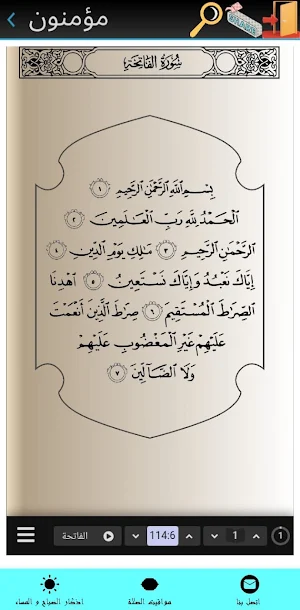 مؤمنون
سُورَةُ الفَاتِحَةِ
بِسْمِ ٱللَّهِ ٱلرَّحْمَٰنِ ٱلرَّحِيمِ ١
ٱلْحَمْدُ لِلَّهِ رَبِّ ٱلْعَٰلَمِينَ ٢
ٱلرَّحْمَٰنِ ٱلرَّحِيمِ ٣ مَٰلِكِ يَوْمِ ٱلدِّينِ ٤
إِيَّاكَ نَعْبُدُ وَإِيَّاكَ نَسْتَعِينُ ٥ ٱهْدِنَا
ٱلصِّرَٰطَ ٱلْمُسْتَقِيمَ ٦ صِرَٰطَ ٱلَّذِينَ أَنْعَمْتَ
عَلَيْهِمْ غَيْرِ ٱلْمَغْضُوبِ عَلَيْهِمْ
وَلَا ٱلضَّآلِّينَ ٧
الفاتحة 114:6 1 1
اتصل بنا مواقيت الصلاة اذكار الصباح و المساء